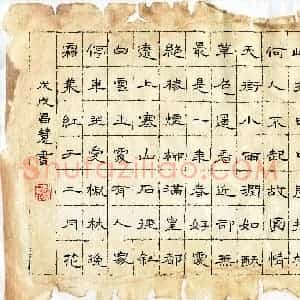 何人不起故園情
天街小雨潤如酥
草色遥看近却無
最是一年春好處
絕勝煙柳滿皇都
遠上寒山石徑斜
白雲生處有人家
停車坐愛楓林晚
霜葉紅于二月花
戊戌昌慧書
shufaziliao.com